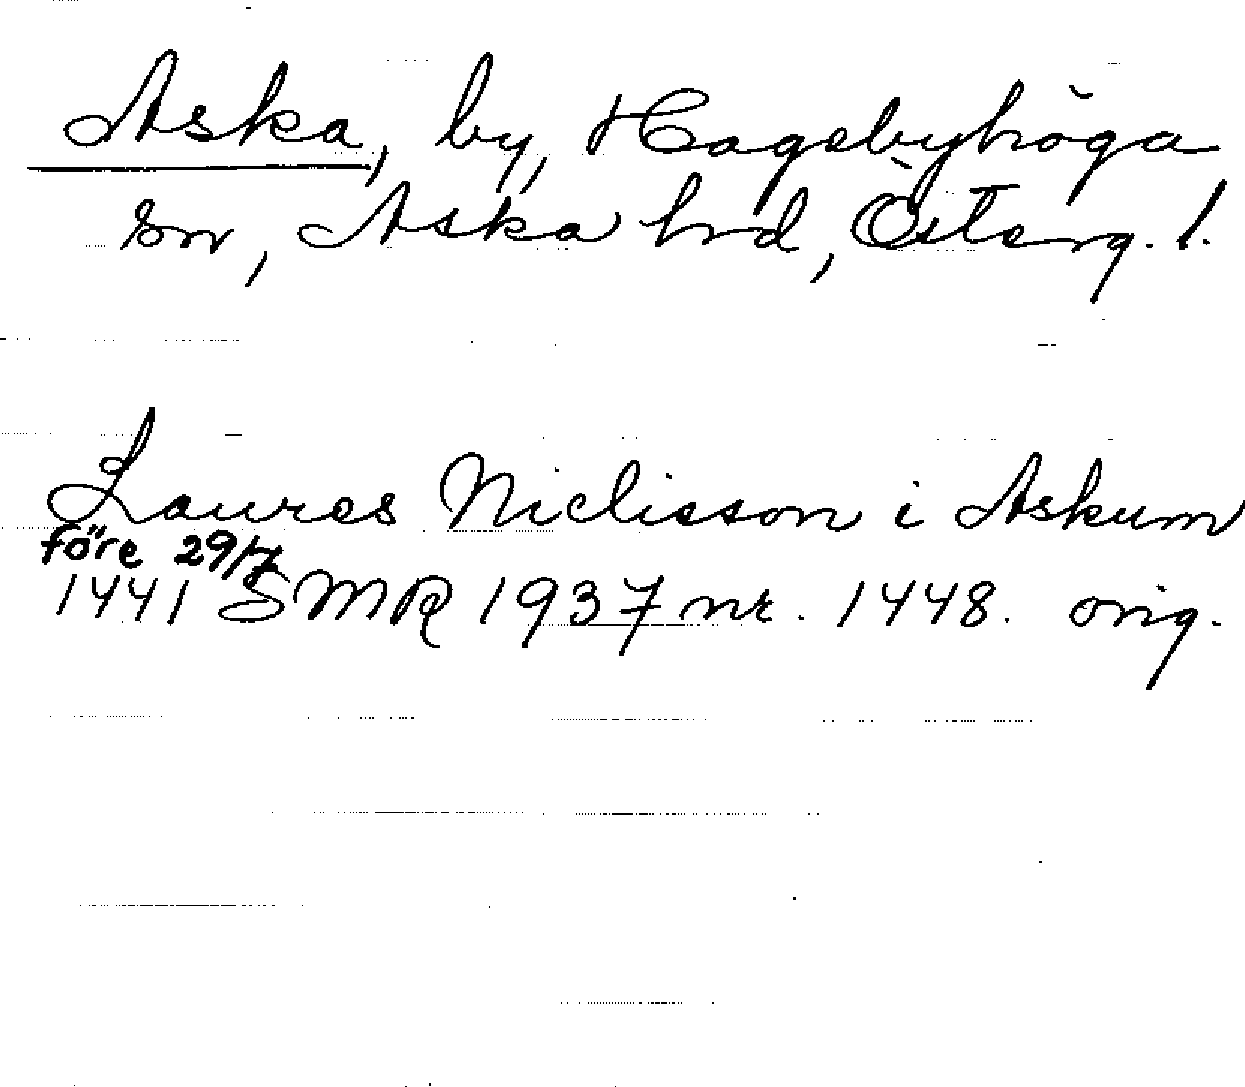 Aska, by, Hagebyhöga
sn, Aska hrd, Österg. l.
Laures Niclisson i Askum
före 29/7
1441 SMR 1937 nr. 1448. orig.